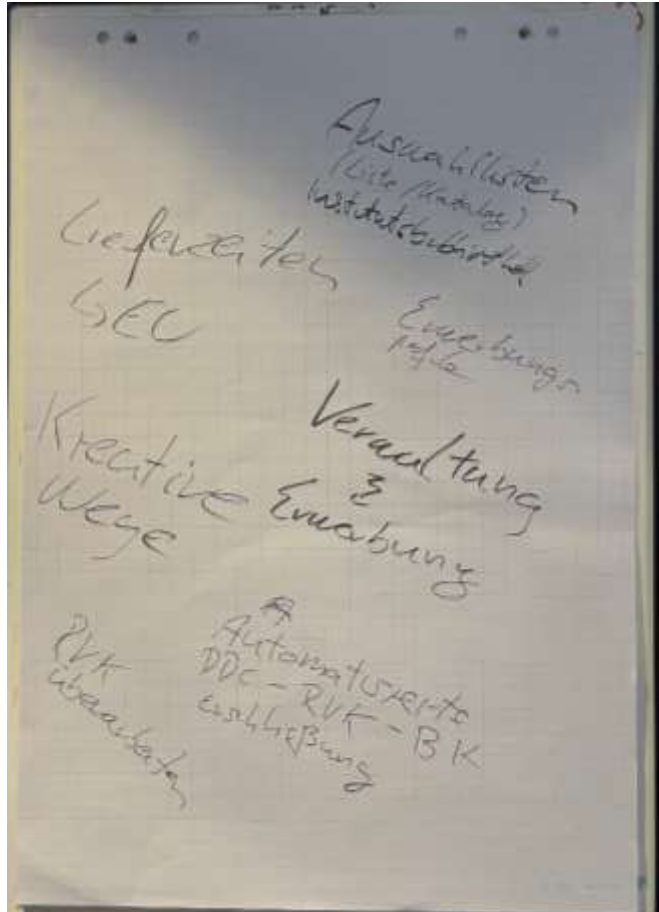 Auswahllisten
(Liste/Katalog)
Institutsbibliothek
Lieferzeiten
GEC
Erwerbungs-
profile
Verwaltung
&
Erwerbung
Kreative
Wege
Automatisierte
DDC-RVK-BK
Erschließung
RVK
überarbeiten